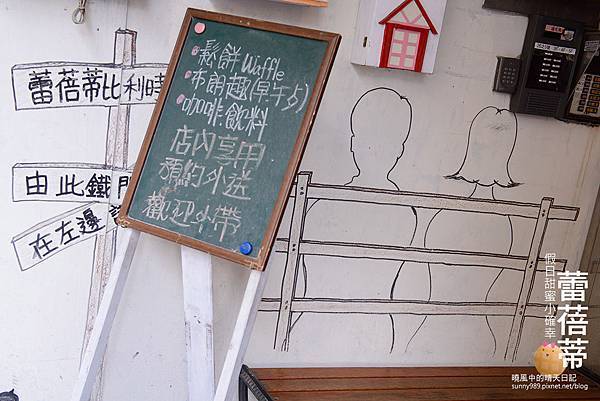 鬆餅 Waffle
布朗趣(早午夕)
咖啡飲料
店內享用
預約外送
歡迎外帶
蕾蓓蒂比利時
由此鐵門
在左邊
假日甜蜜小確幸
蕾蓓蒂
曉風中的晴天日記
sunny989.pixnet.net/blog